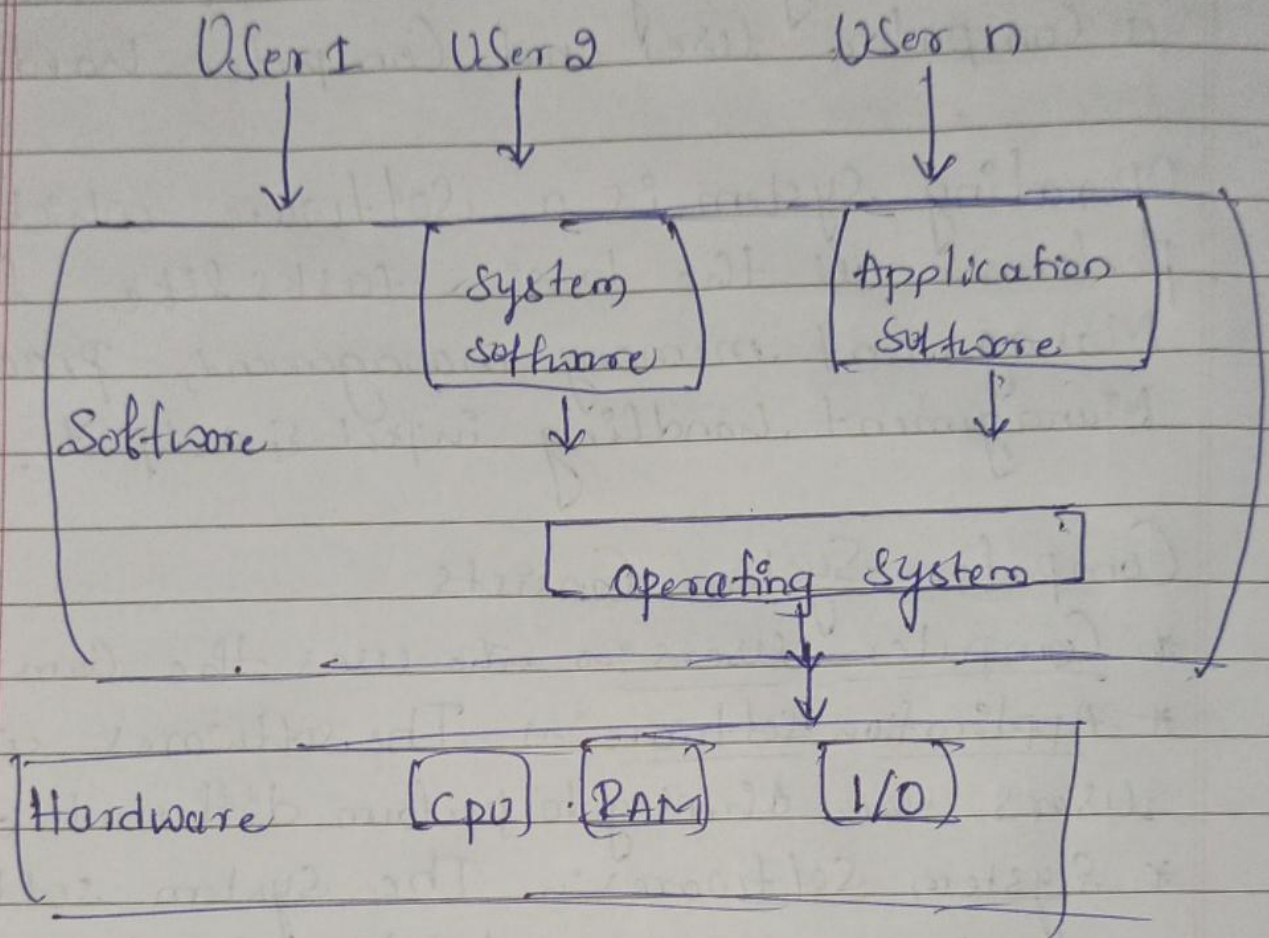 User 1 User 2 User n
System Application
software software
Software
Operating System
Hardware CPU RAM I/O